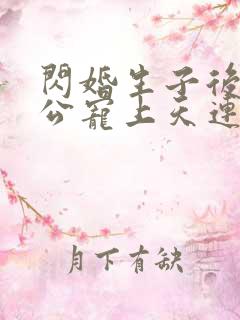 閃婚生子後
公寵上天連
月下有缺